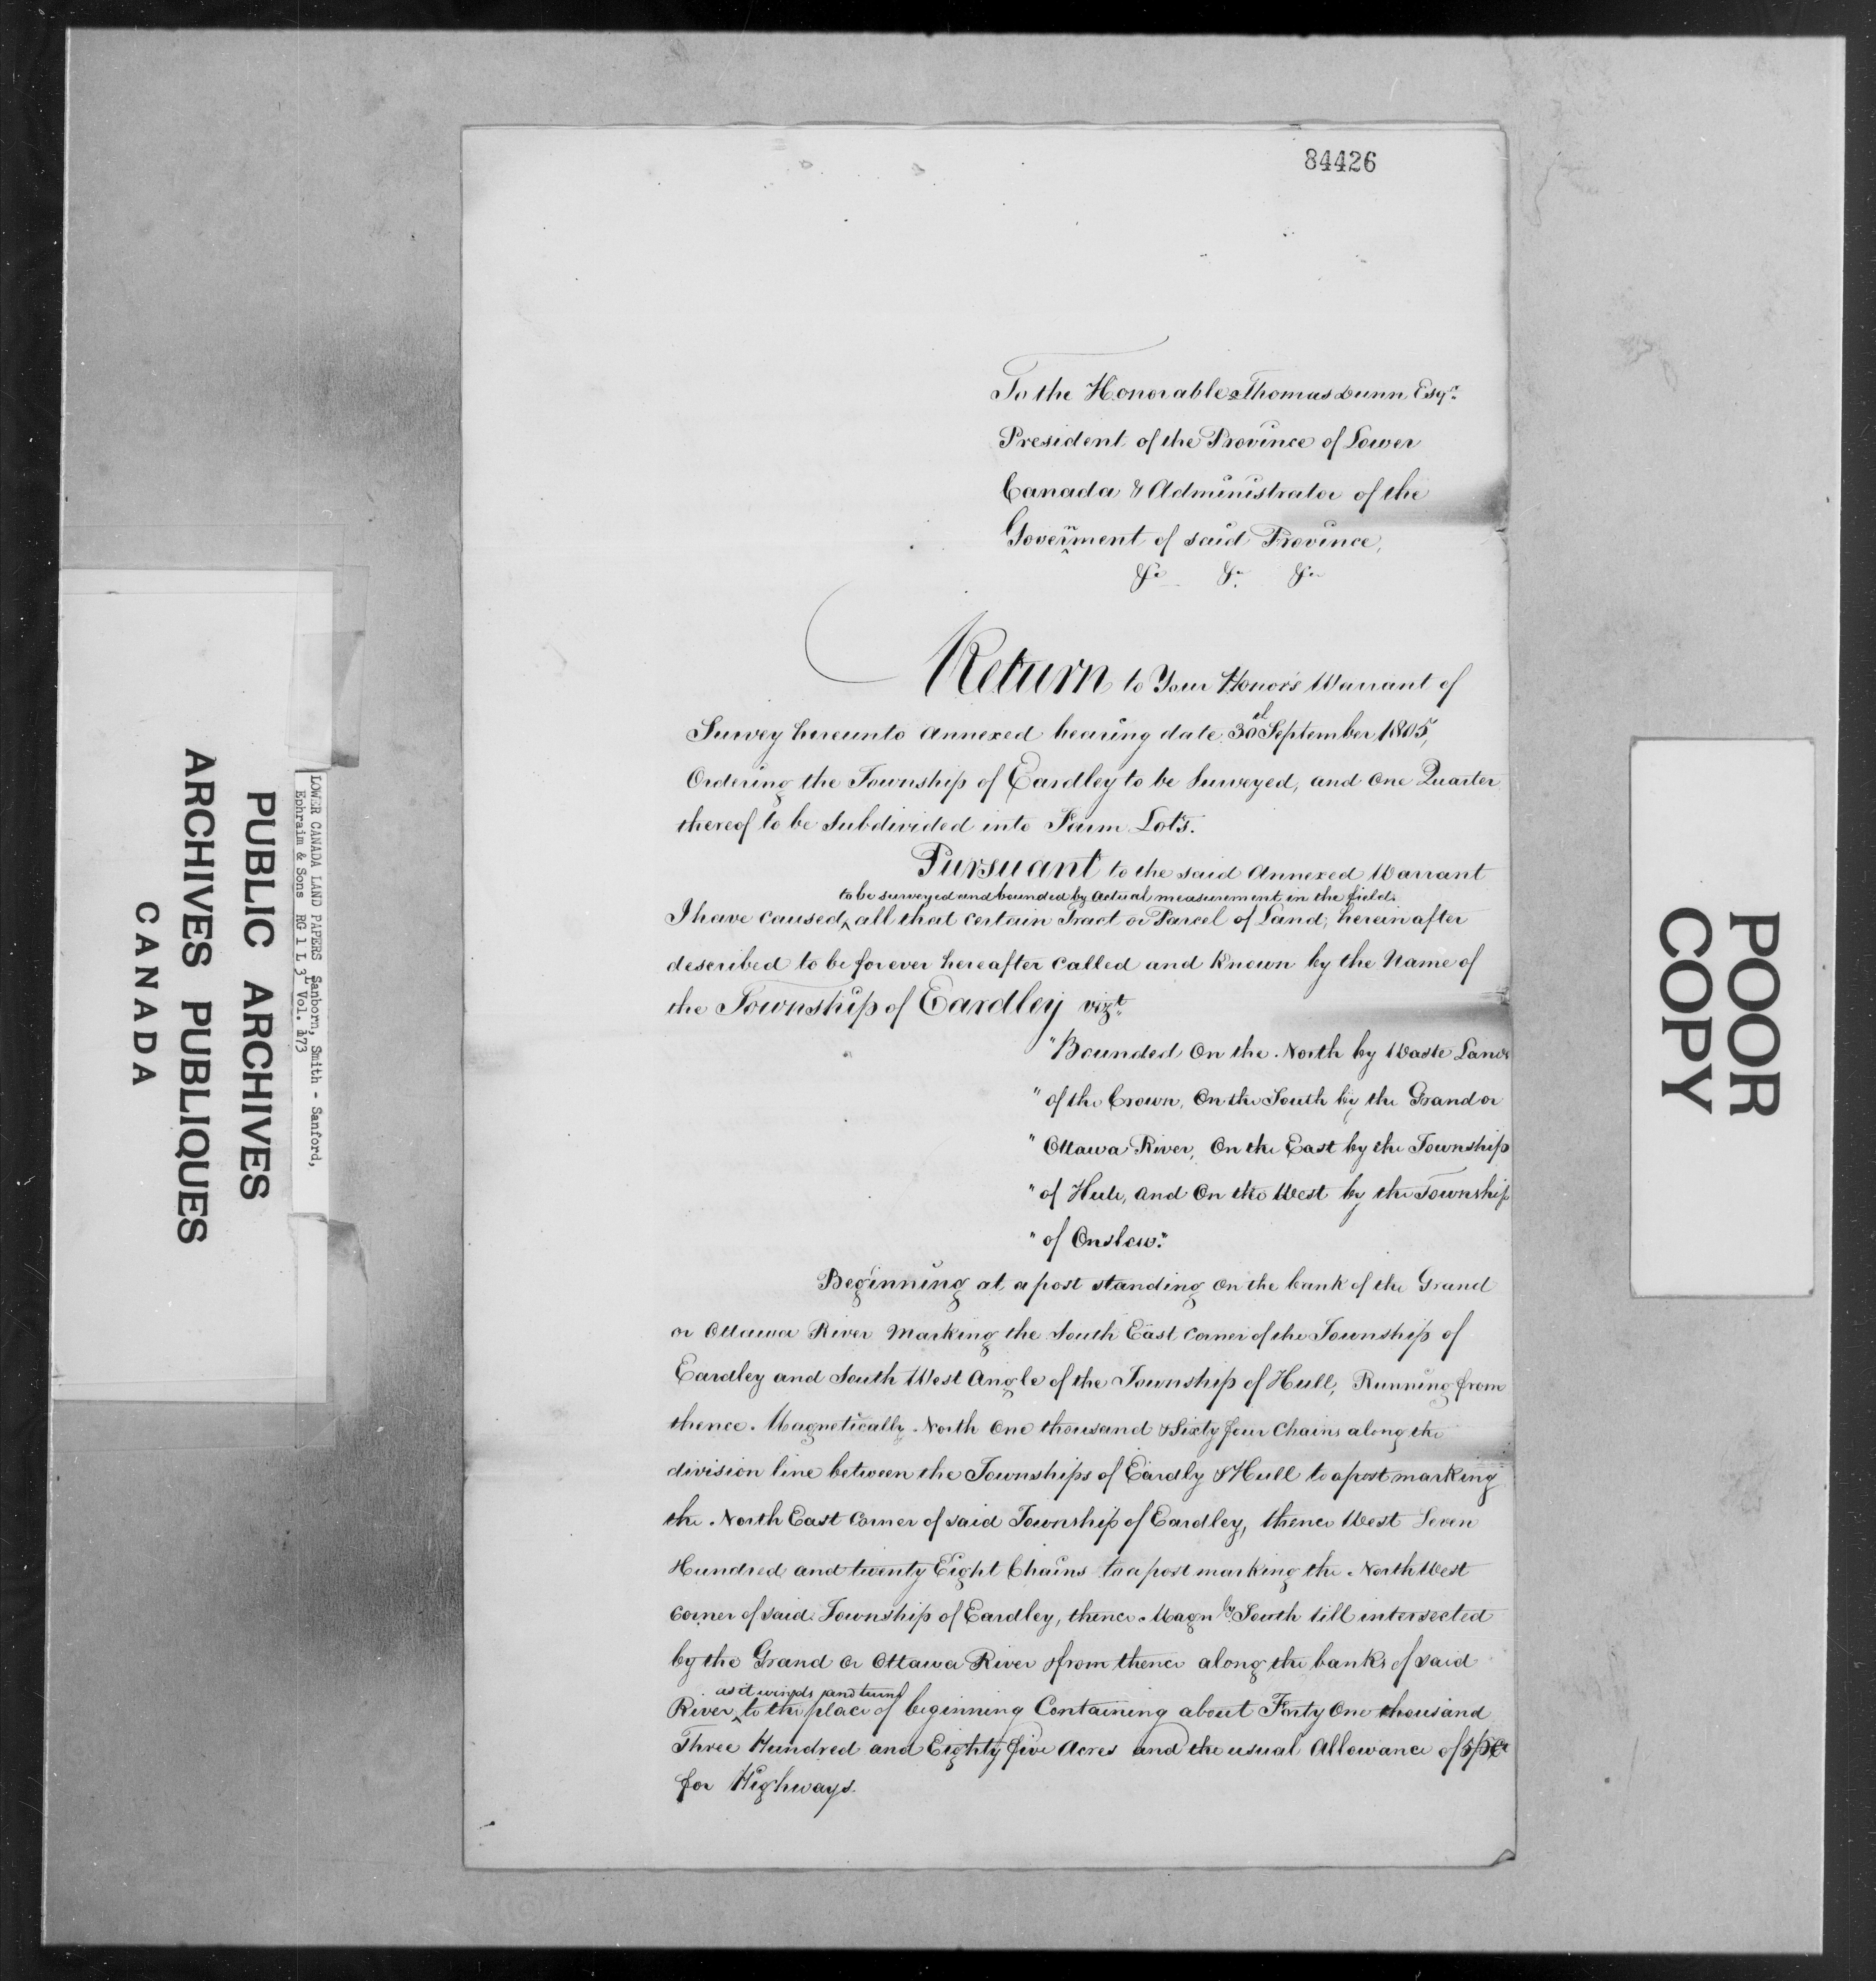 84426
To the Honorable Thomas Dunn Esqr.
President of the Province of Lower
Canada & Administrator of the
Government of said Province,
&c &c &c
Return to Your Honor's Warrant of
Survey hereunto Annexed bearing date 30th September 1805,
Ordering the Township of Eardley to be Surveyed, and One Quarter
thereof to be Subdivided into Farm Lots.
Pursuant to the said Annexed Warrant
to be surveyed and bounded by Actual measurement in the field.
I have caused, all that certain Tract or Parcel of Land, herein after
described to be forever hereafter called and Known by the Name of
the Township of Eardley vizt.
"Bounded On the North by Waste Lands
"of the Crown, On the South by the Grand or
"Ottawa River, On the East by the Township
"of Hull, and On the West by the Township
"of Onslow."
Beginning at a post standing on the bank of the Grand
or Ottawa River Marking the South East Corner of the Township of
Eardley and South West Angle of the Township of Hull, Running from
thence Magnetically North One thousand & Sixty four Chains along the
division line between the Townships of Eardly & Hull to a post marking
the North East Corner of said Township of Eardley, thence West Seven
Hundred and twenty Eight Chains to a post marking the North West
Corner of said Township of Eardley, thence Magnly South till intersected
by the Grand Or Ottawa River & from thence along the banks of said
as it winds and turns
River, to the place of beginning Containing about Forty One thousand
Three Hundred and Eighty five Acres and the usual Allowance of
for Highways.
LOWER CANADA LAND PAPERS Sanborn, Smith - Sanford,
Ephraim & Sons RG 1 L 3L Vol. 173
PUBLIC ARCHIVES
ARCHIVES PUBLIQUES
CANADA
POOR
COPY